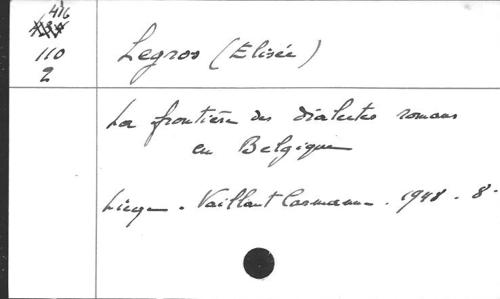 416
110
2
Legros (Elisée)
La frontière des dialectes romans
en Belgique
Liège. Vaillant Carmanne. 1948. 8°